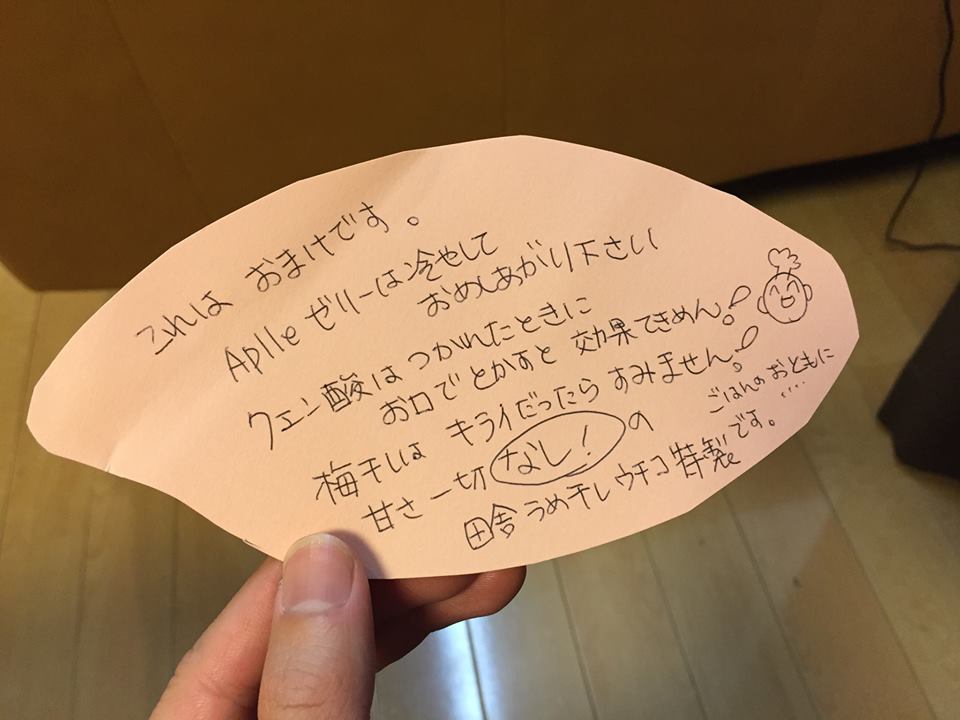 これは おまけです。
Aplle ゼリーは冷やして
おめしあがり下さい
クエン酸は つかれたときに
お口でとかすと 効果てきめん!
梅干しは キライだったら すみません!
甘さ一切 なし! の
田舎うめ干し ウチコ特製です。
ごはんのおともに…